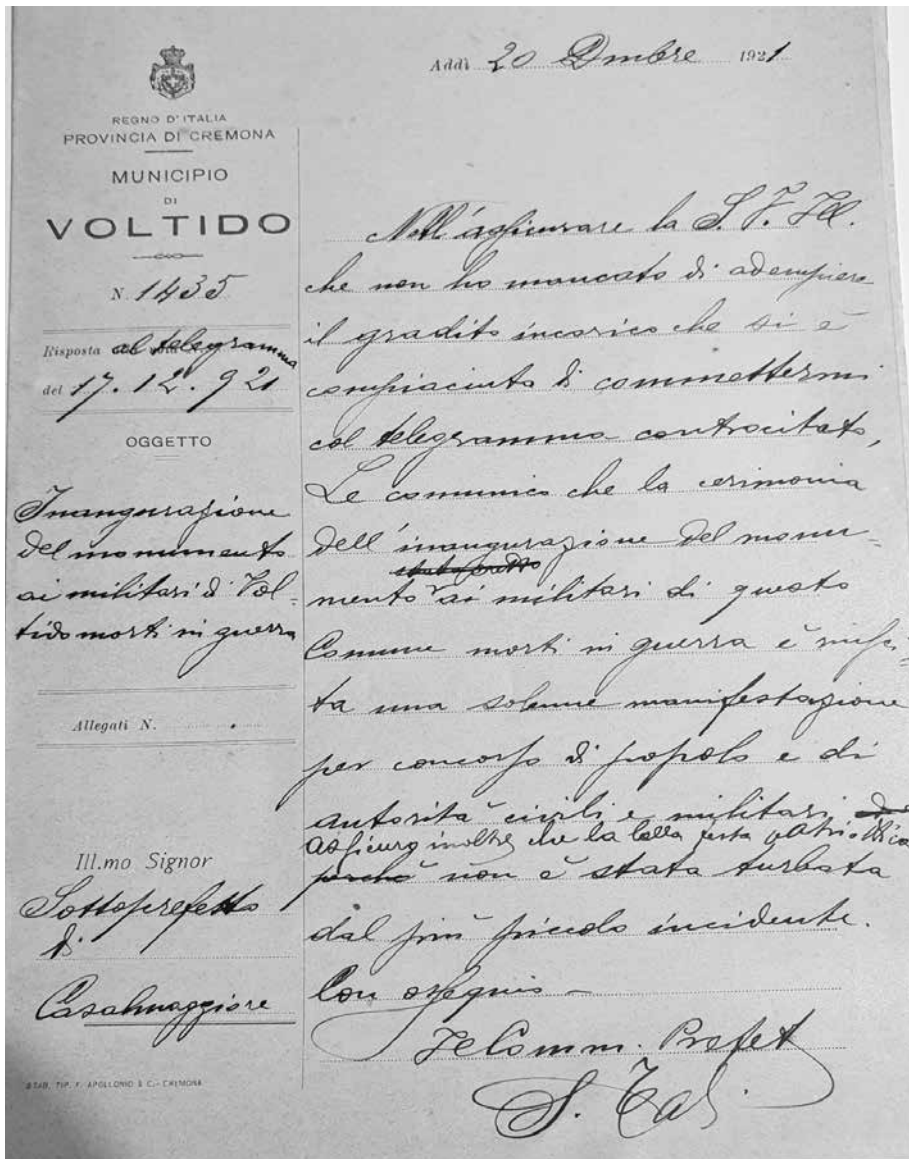 Addì 20 Dmbre 1921
REGNO D'ITALIA
PROVINCIA DI CREMONA
MUNICIPIO
DI
VOLTIDO
N. 1435
Risposta al telegramma
del 17.12.921
OGGETTO
Inaugurazione
del monumento
ai militari di Vol-
tido morti in guerra
Allegati N.
Ill.mo Signor
Sottoprefetto
di
Casalmaggiore
STAB. TIP. F. APOLLONIO & C. - CREMONA
Nell'assicurare la S. V. Ill.
che non ho mancato di adempiere
il gradito incarico che si è
compiaciuto di commettermi
col telegramma controcitato,
Le comunico che la cerimonia
dell'inaugurazione del monu-
mento ai militari di questo
Comune morti in guerra è riusci-
ta una solenne manifestazione
per concorso di popolo e di
autorità civili e militari
assicuro inoltre che la bella festa patriottica
non è stata turbata
dal più piccolo incidente.
Con ossequio -
Il Comm. Prefet
S.